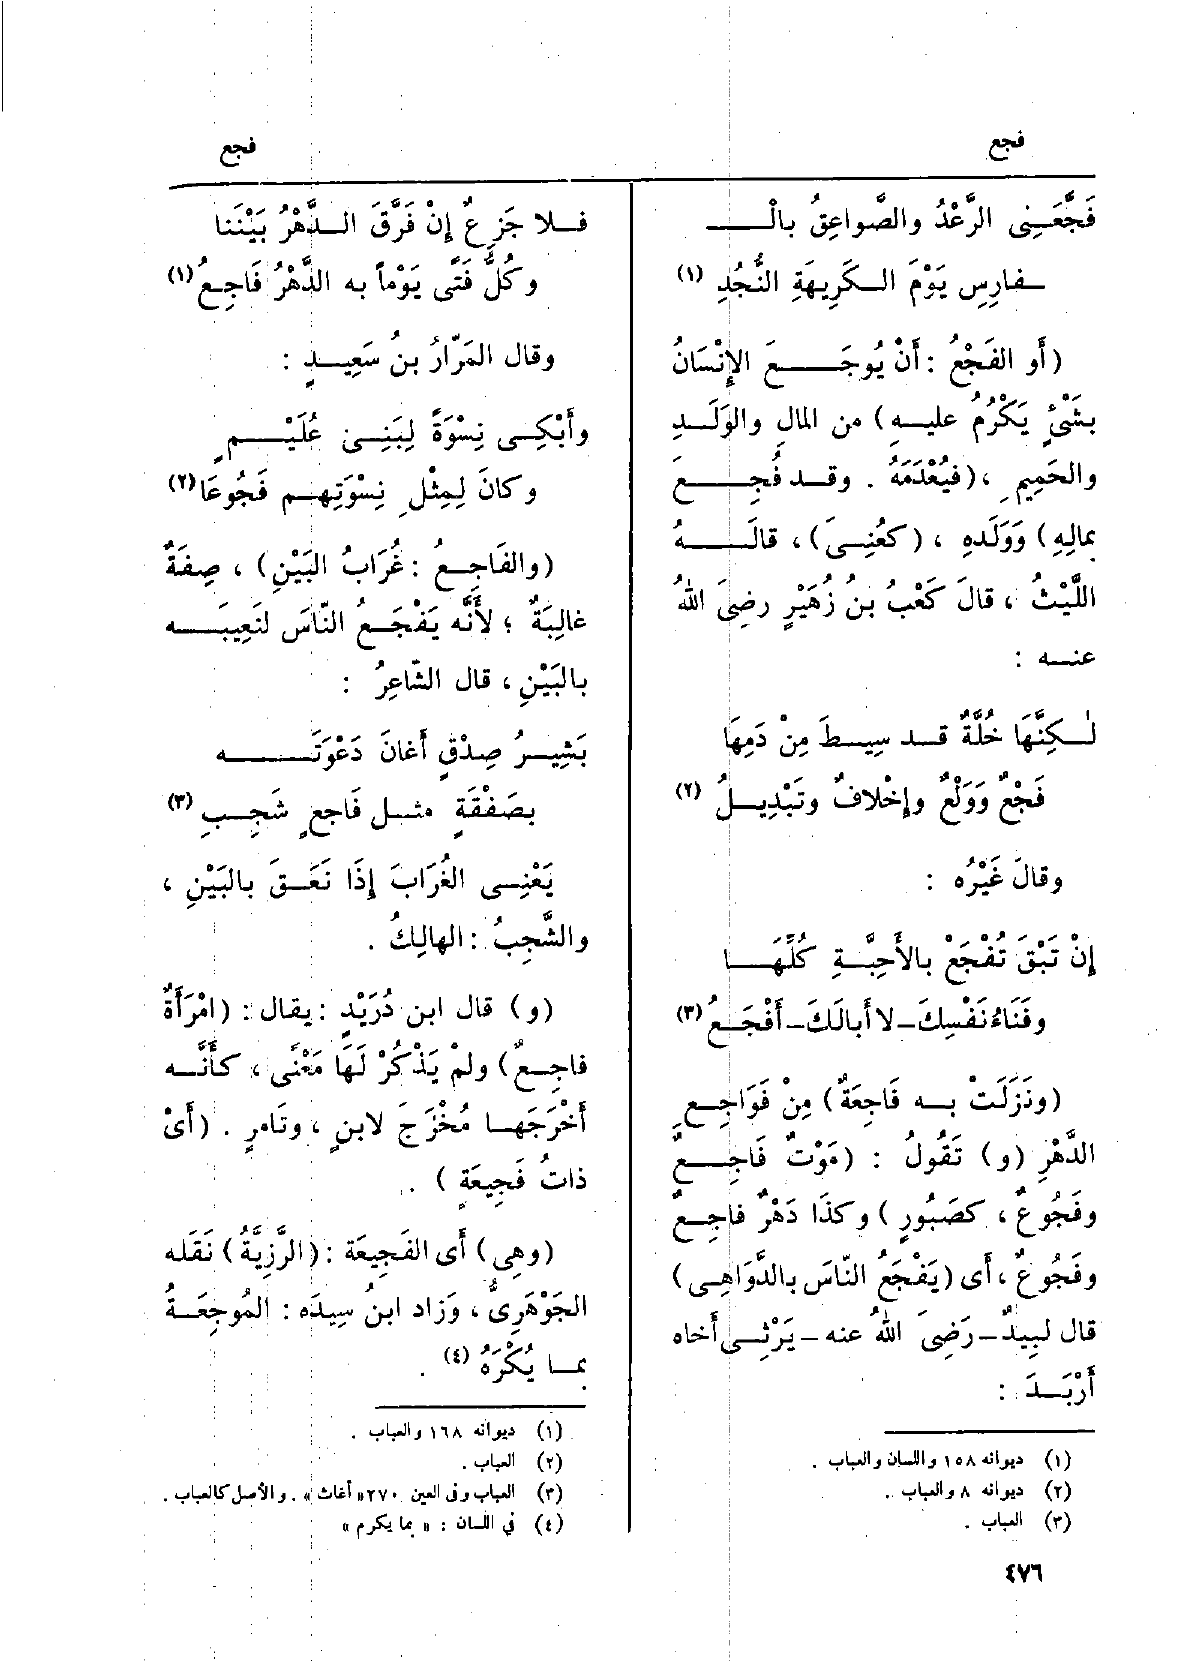 فجع
فجع
فَجَّعَنِى الرَّعْدُ والصَّواعِقُ بالْـ
ـفارِسِ يَوْمَ الكَرِيهَةِ النَّجُدِ (١)
(أو الفَجْعُ : أَنْ يُوجَعَ الإِنْسَانُ
بشَىْءٍ يَكْرُمُ عليهِ) من المَالِ والوَلَدِ
والحَمِيمِ ، (فيُعْدَمَهُ . وقد فُجِعَ
بمالِهِ) وَوَلَدِهِ ، (كعُنِىَ) ، قالَهُ
اللَّيْثُ ، قالَ كَعْبُ بنُ زُهَيْرٍ رضِىَ اللهُ
عنه :
لٰكِنَّهَا خُلَّةٌ قد سِيطَ مِنْ دَمِهَا
فَجْعٌ وَوَلْعٌ وإِخْلافٌ وتَبْدِيلُ (٢)
وقالَ غَيْرُه :
إِنْ تَبْقَ تُفْجَعْ بالأَحِبَّةِ كُلِّهَا
وفَنَاءُ نَفْسِكَ - لا أَبالَكَ - أَفْجَعُ (٣)
(ونَزَلَتْ به فَاجِعَةٌ) مِنْ فَوَاجِعِ
الدَّهْرِ (و) تَقُولُ : (مَوْتٌ فَاجِعٌ
وفَجُوعٌ ، كصَبُورٍ) وكذَا دَهْرٌ فاجِعٌ
وفَجُوعٌ ، أَى (يَفْجَعُ النّاسَ بالدَّوَاهِى)
قال لبِيدٌ - رَضِىَ اللهُ عنه - يَرْثِى أَخاه
أَرْبَدَ :
(١) ديوانه ١٥٨ واللسان والعباب .
(٢) ديوانه ٨ والعباب .
(٣) العباب .
٤٧٦
فلا جَزِعٌ إِنْ فَرَّقَ الدَّهْرُ بَيْنَنا
وكُلُّ فَتًى يَوْماً به الدَّهْرُ فَاجِعُ (١)
وقال المَرّارُ بنُ سَعِيدٍ :
وأَبْكِى نِسْوَةً لِبَنِى عُلَيْمٍ
وكانَ لِمِثْلِ نِسْوَتِهِم فَجُوعَا (٢)
(والفَاجِعُ : غُرَابُ البَيْنِ) ، صِفَةٌ
غالِبَةٌ ؛ لأَنَّه يَفْجَعُ النّاسَ لنَعِيبَه
بالبَيْنِ ، قال الشّاعِرُ :
بَشِيرُ صِدْقٍ أَغانَ دَعْوَتَه
بصَفْقَةٍ مثل فَاجِعٍ شَجِبِ (٣)
يَعْنِى الغُرَابَ إِذَا نَعَقَ بالبَيْنِ ،
والشَّجِبُ : الهالِكُ .
(و) قال ابن دُرَيْدٍ : يقال : (امْرَأَةٌ
فاجِعٌ) ولَمْ يَذْكُرْ لَهَا مَعْنًى ، كأَنَّه
أَخْرَجَها مُخْرَجَ لابنٍ ، وتَامرٍ . (أَىْ
ذاتُ فَجِيعَةٍ ) .
(وهِى) أَى الفَجِيعَة : (الرَّزِيَّةُ) نَقَله
الجَوْهَرِىُّ ، وَزاد ابنُ سِيدَه : المُوجِعَةُ
بما يُكْرَهُ (٤) .
(١) ديوانه ١٦٨ والعباب .
(٢) العباب .
(٣) العباب وفى العين ٢٧٠ « أغاث » . والأصل كالعباب .
(٤) في اللسان : « بما يكرم »